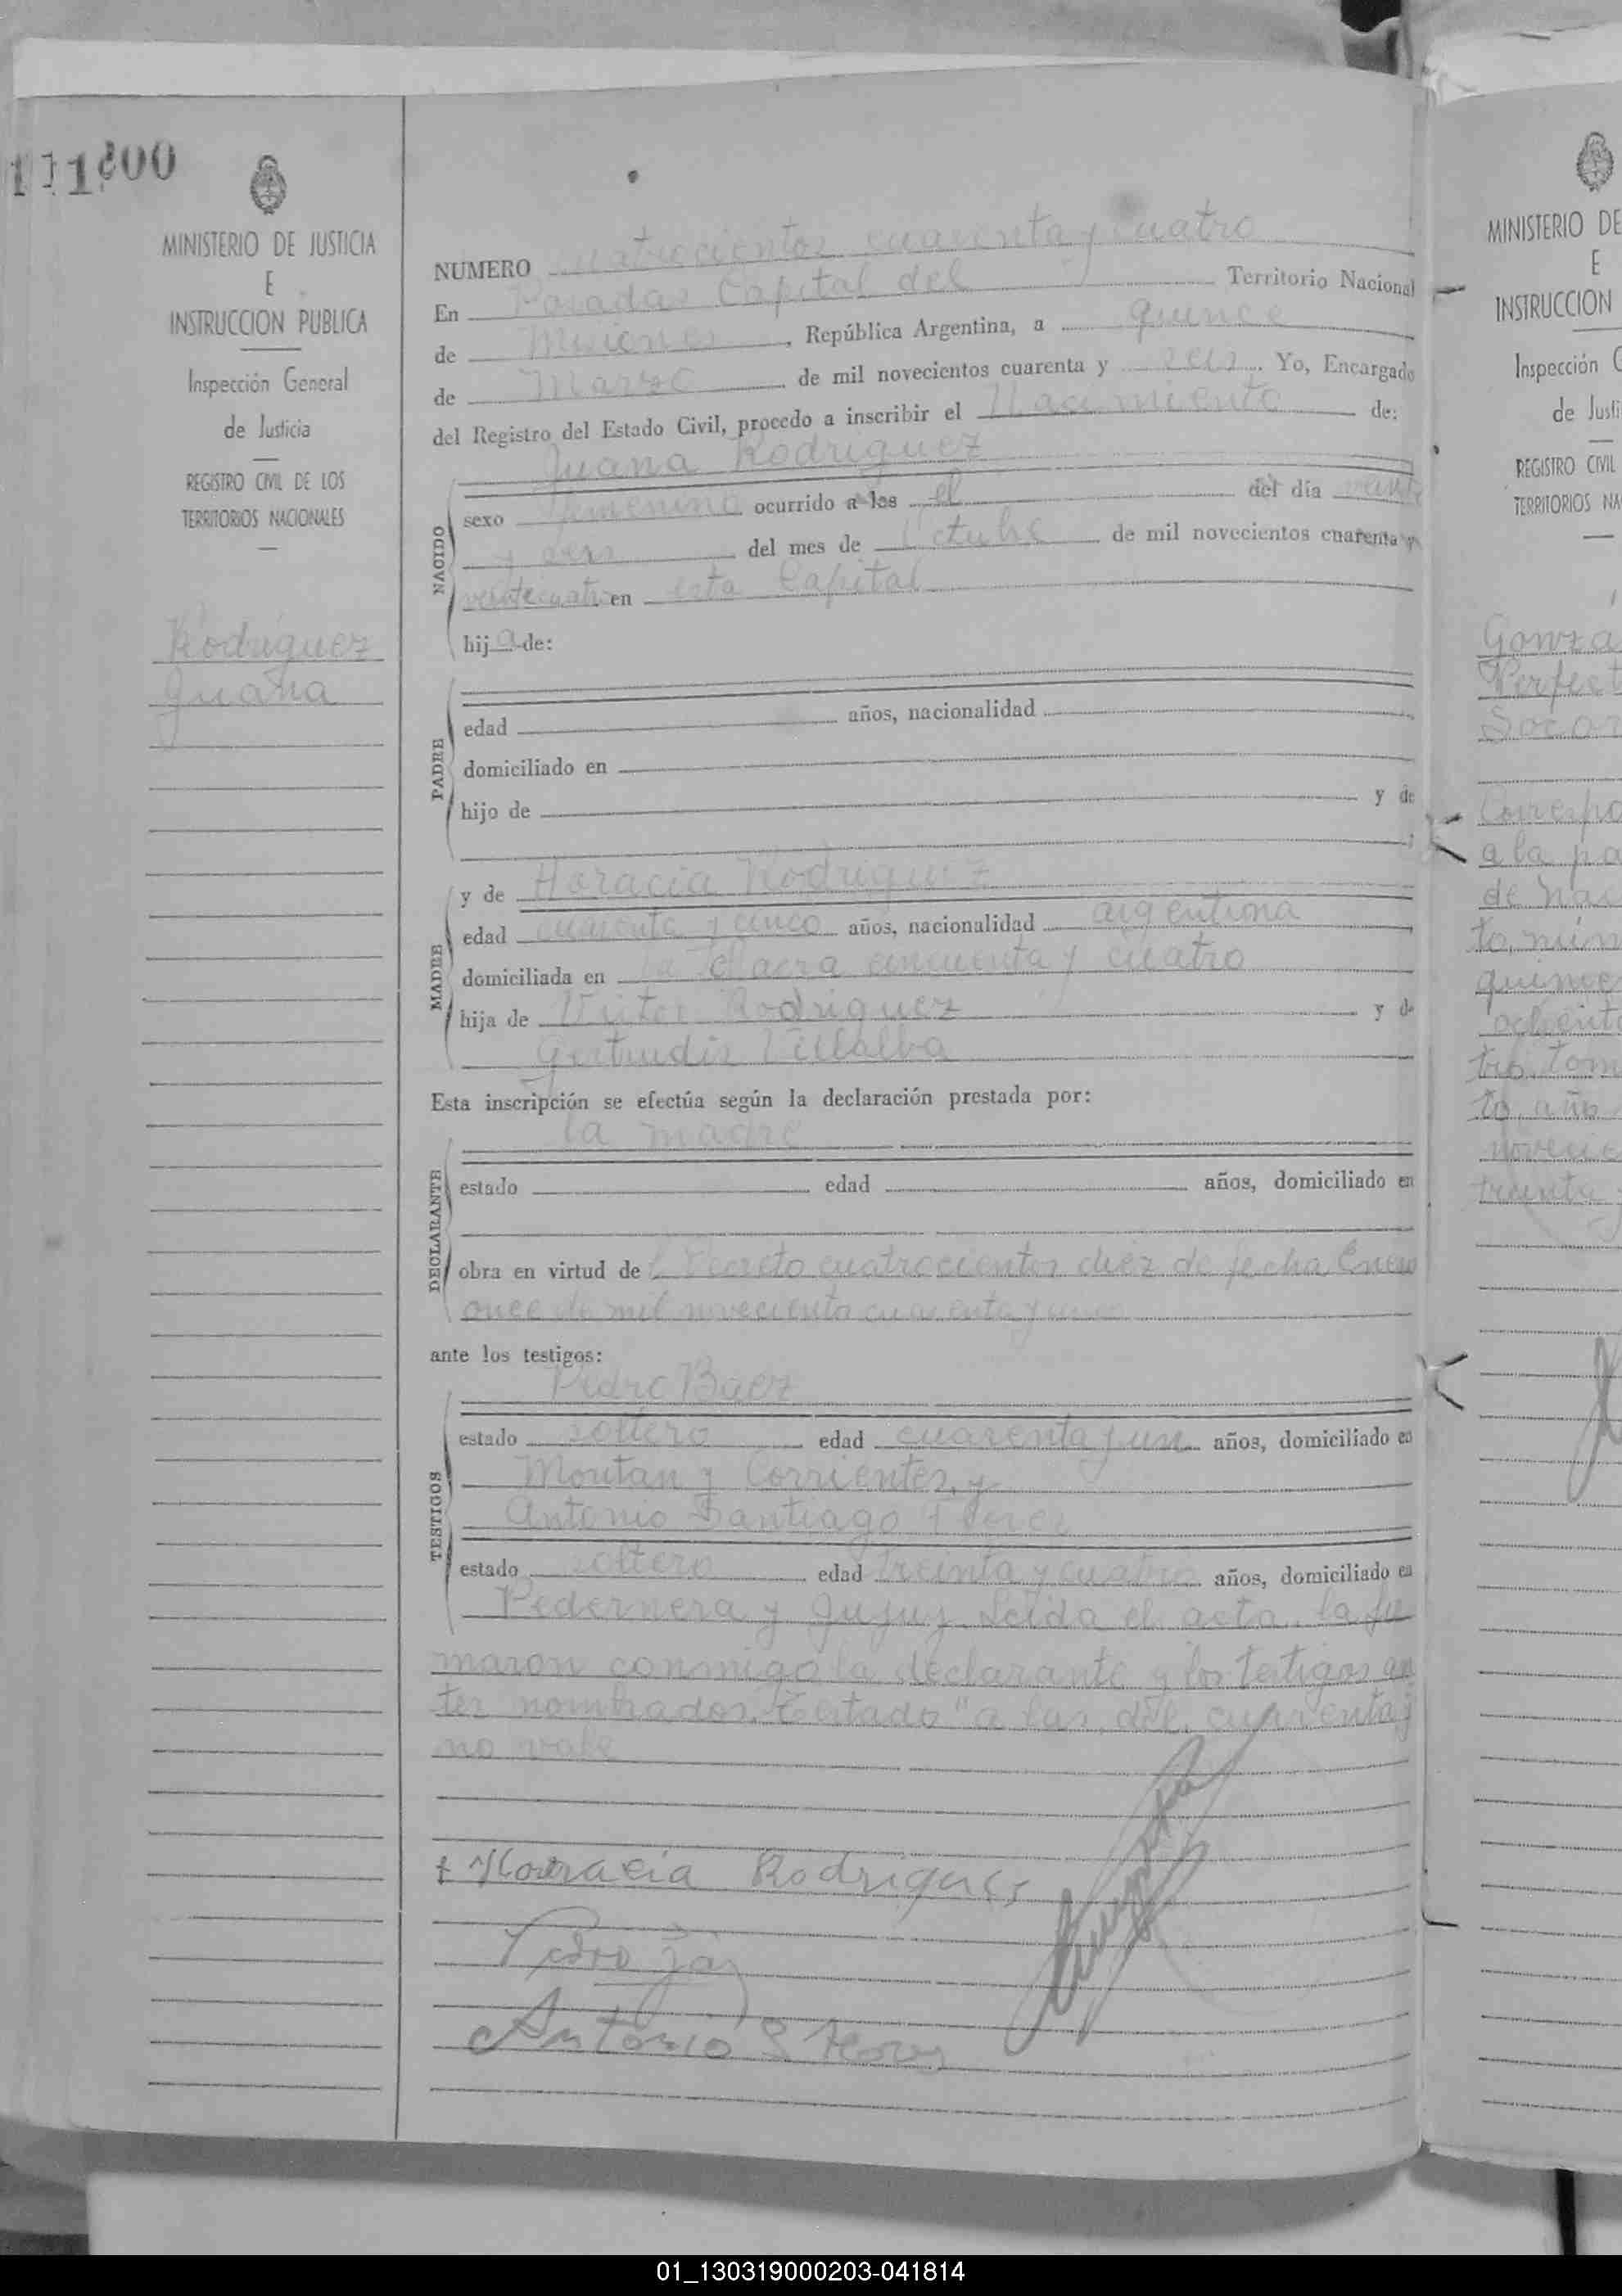 MINISTERIO DE JUSTICIA
E
INSTRUCCION PUBLICA
Inspección General
de Justicia
REGISTRO CIVIL DE LOS
TERRITORIOS NACIONALES
Rodriguez
Juana
NUMERO cuatrocientos cuarenta y cuatro
En Posadas Capital del Territorio Nacional
de Misiones, República Argentina, a quince
de Marzo de mil novecientos cuarenta y seis. Yo, Encargado
del Registro del Estado Civil, procedo a inscribir el Nacimiento de:
Juana Rodriguez
NACIDO
sexo femenino ocurrido a las el del día veinte
y seis del mes de Octubre de mil novecientos cuarenta y
veinticuatro en esta Capital
hija de:
PADRE
edad años, nacionalidad
domiciliado en
hijo de y de
y de Horacia Rodriguez
MADRE
edad cuarenta y cinco años, nacionalidad argentina
domiciliada en la Chacra cincuenta y cuatro
hija de Rodriguez y de
Gertrudis Villalba
Esta inscripción se efectúa según la declaración prestada por:
la madre
DECLARANTE
estado edad años, domiciliado en
obra en virtud del Decreto cuatrocientos diez de fecha Enero
once de mil novecientos cuarenta y
ante los testigos:
Pedro Baez
TESTIGOS
estado soltero edad cuarenta y un años, domiciliado en
y Corrientes, y
Antonio Santiago
estado soltero edad treinta y cuatro años, domiciliado en
Pedernera y Jujuy. Leida el acta, la fir
maron conmigo la declarante y los testigos an
tes nombrados. Testado "a las, del, cuarenta y
no vale
Horracia Rodrigues
Pedro
Antonio S
MINISTERIO DE
E
INSTRUCCION
Inspección G
de Justi
REGISTRO CIVIL
TERRITORIOS NA
Gonzá
Perfect
Socor
Correspo
a la pa
de nac
to, núm
quinie
ochent
tro, tom
to, año
novecie
treinta y
01_130319000203-041814